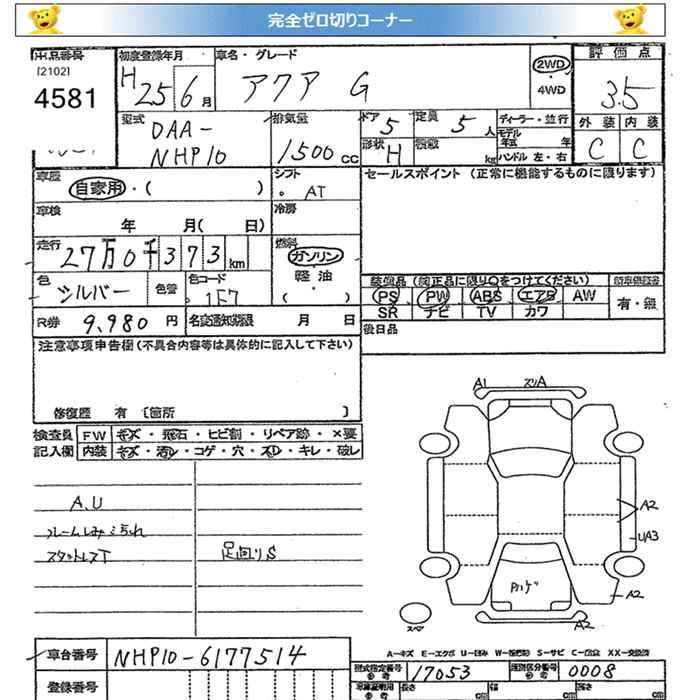 完全ゼロ切りコーナー
出品番号 初度登録年月 車名・グレード 評価点
[2102]
4581 H 25 6月 アクア G 2WD・4WD 3.5
型式 排気量 ドア 定員 ディーラー・並行 外装 内装
DAA-NHP10 1500cc 5 5人 モデル年式 年 C C
形状 H 積載 kg ハンドル 左・右
車歴 シフト セールスポイント(正常に機能するものに限ります)
自家用・( ) AT
車検 冷房
年 月( 日)
走行 燃料
27万0千373km ガソリン
軽油
( )
色 シルバー 色替 色コード 1F7
装備品(純正品に限り○をつけてください)
PS PW ABS エアB AW 有・無
SR ナビ TV カワ
R券 9,980円 名変通知期限 月 日 後日品
注意事項申告欄(不具合内容等は具体的に記入して下さい)
修復歴 有 〔箇所 〕
検査員 FW キズ・飛石・ヒビ割・リペア跡・×要
記入欄 内装 キズ・汚レ・コゲ・穴・スレ・キレ・破レ
A1 スリA
A.U
スタットレスT 足回りS
A2
UA3
A2
Pハゲ
スペア A2
A-キズ E-エクボ U-凹み W-補修跡 S-サビ C-腐食 XX-交換済
車台番号 NHP10-6177514 型式指定番号 17053 類別区分番号 0008
登録番号 長さ cm 幅 cm 高さ cm